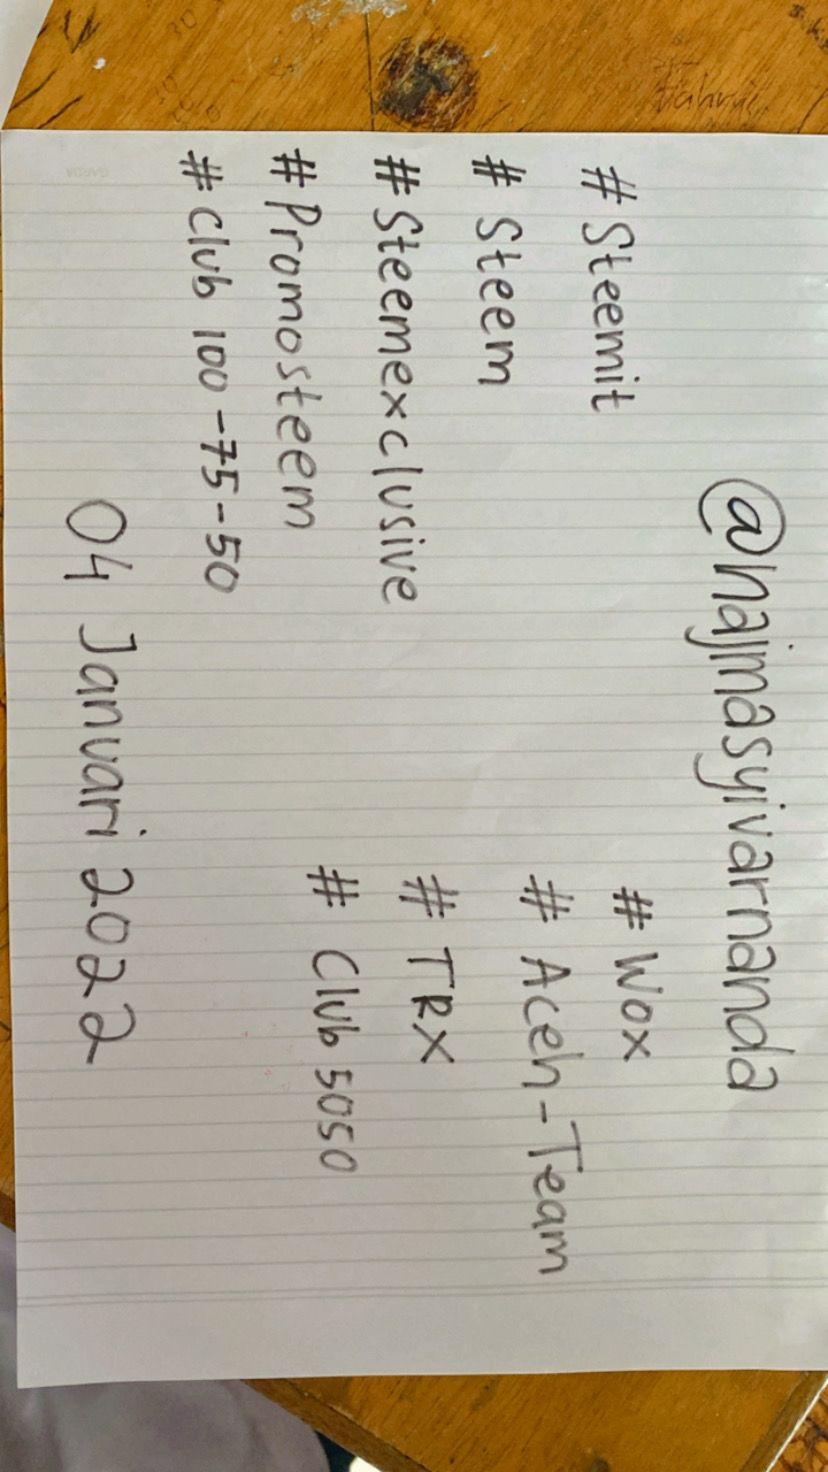 @najmasyivarnanda
#Steemit
#Steem
#Steemexclusive
#Promosteem
#Club 100-75-50
#Wox
#Aceh-Team
#TRX
#Club 5050
04 Januari 2022
GARDA